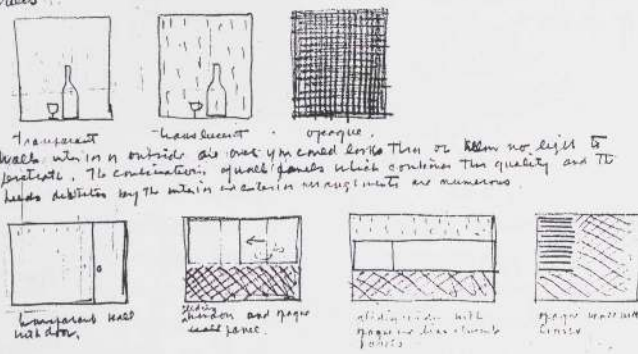 transparent translucent opaque.
walls interior or outside are ones you could look thru or no light to
penetrate. The combinations of wall panels which combine this quality and the
needs dictated by the interior or exterior arrangements are numerous.
transparent wall
with door.
sliding
window and opaque
wall panel.
sliding window with
opaque and translucent
panels
opaque with